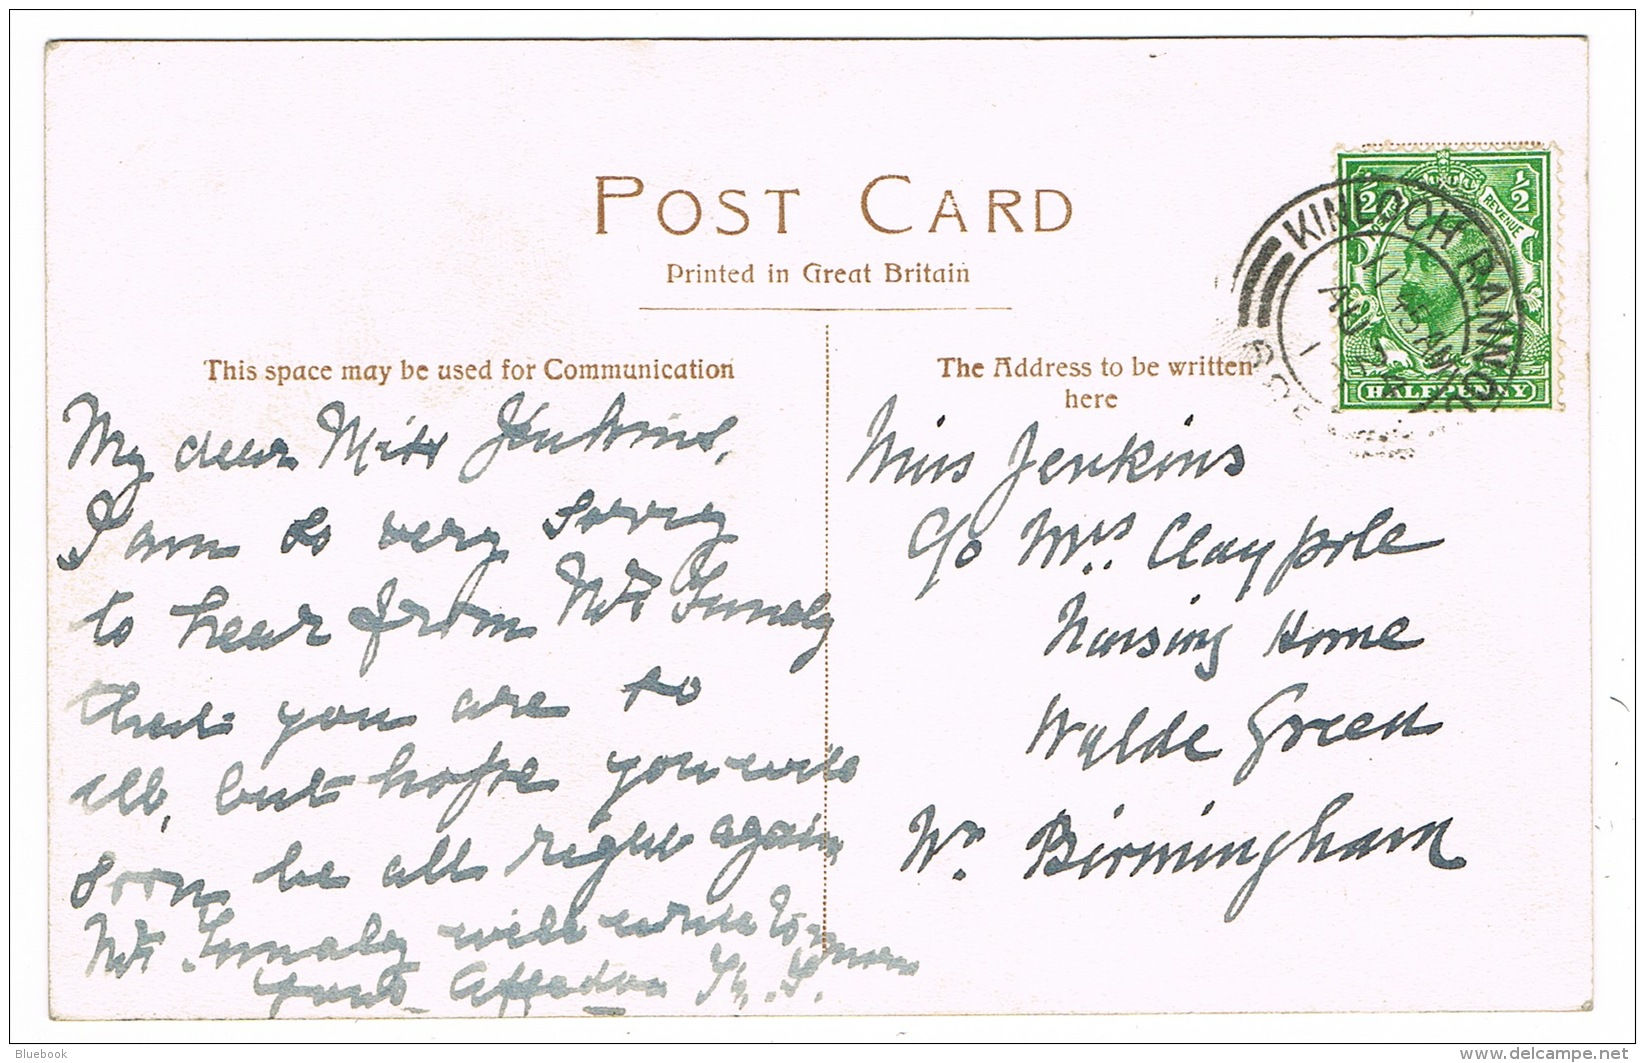 POST CARD
Printed in Great Britain
This space may be used for Communication
The Address to be written
here
½ ½
REVENUE
HALFPENNY
KINLOCH RANNOCH
11 15 AM
AU
My dear Miss Jenkins,
I am so very sorry
to hear from
that you are so
ill, but hope you will
soon be all right again
will write
yours
Miss Jenkins
C/o Mrs. Claypole
Nursing Home
Wylde Green
Nr. Birmingham
Bluebook
delcampe.net